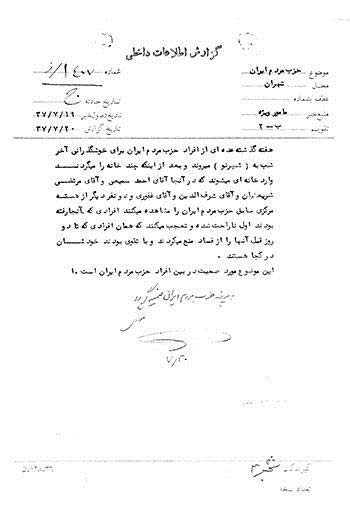 گزارش اطلاعات داخلی
موضوع حزب مردم ایران
شماره ۱۴۰۷/ز
محل تهران
عطف بشماره
تاریخ حادثه
منبع خبر مامور ویژه
تاریخ وصول خبر ۳۷/۷/۱۹
تقویم ب-۲
تاریخ گزارش ۳۷/۷/۲۰
هفته گذشته عده ای از افراد حزب مردم ایران برای خوشگذرانی آخر
شب به ( شهرنو ) میروند و بعد از اینکه چند خانه را میگردند
وارد خانه ای میشوند که در آنجا آقای احمد سمیعی و آقای مرتضی
و آقای شرف الدین و آقای و دو نفر دیگر از دسته
مرکزی سابق حزب مردم ایران را مشاهده میکنند افرادی که بآنجا رفته
بودند اول ناراحت شده و تعجب میکنند که همان افرادی که تا دو
روز قبل آنها را از فساد منع میکردند و یا تئوی بودند خودشان
در کجا هستند .
این موضوع مورد صحبت در بین افراد حزب مردم ایران است .ا
حزب مردم ایران ضمیمه گردد
۷/۳۰
گیرندگان
تعداد نسخه